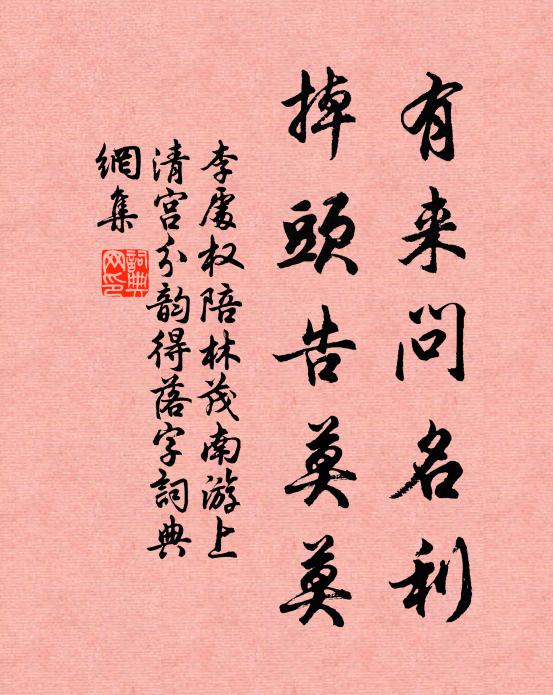 有来问名利
掉頭告莫莫
李處权陪林茂南游上
清宫分韵得落字詞典
網集
詞典
网印